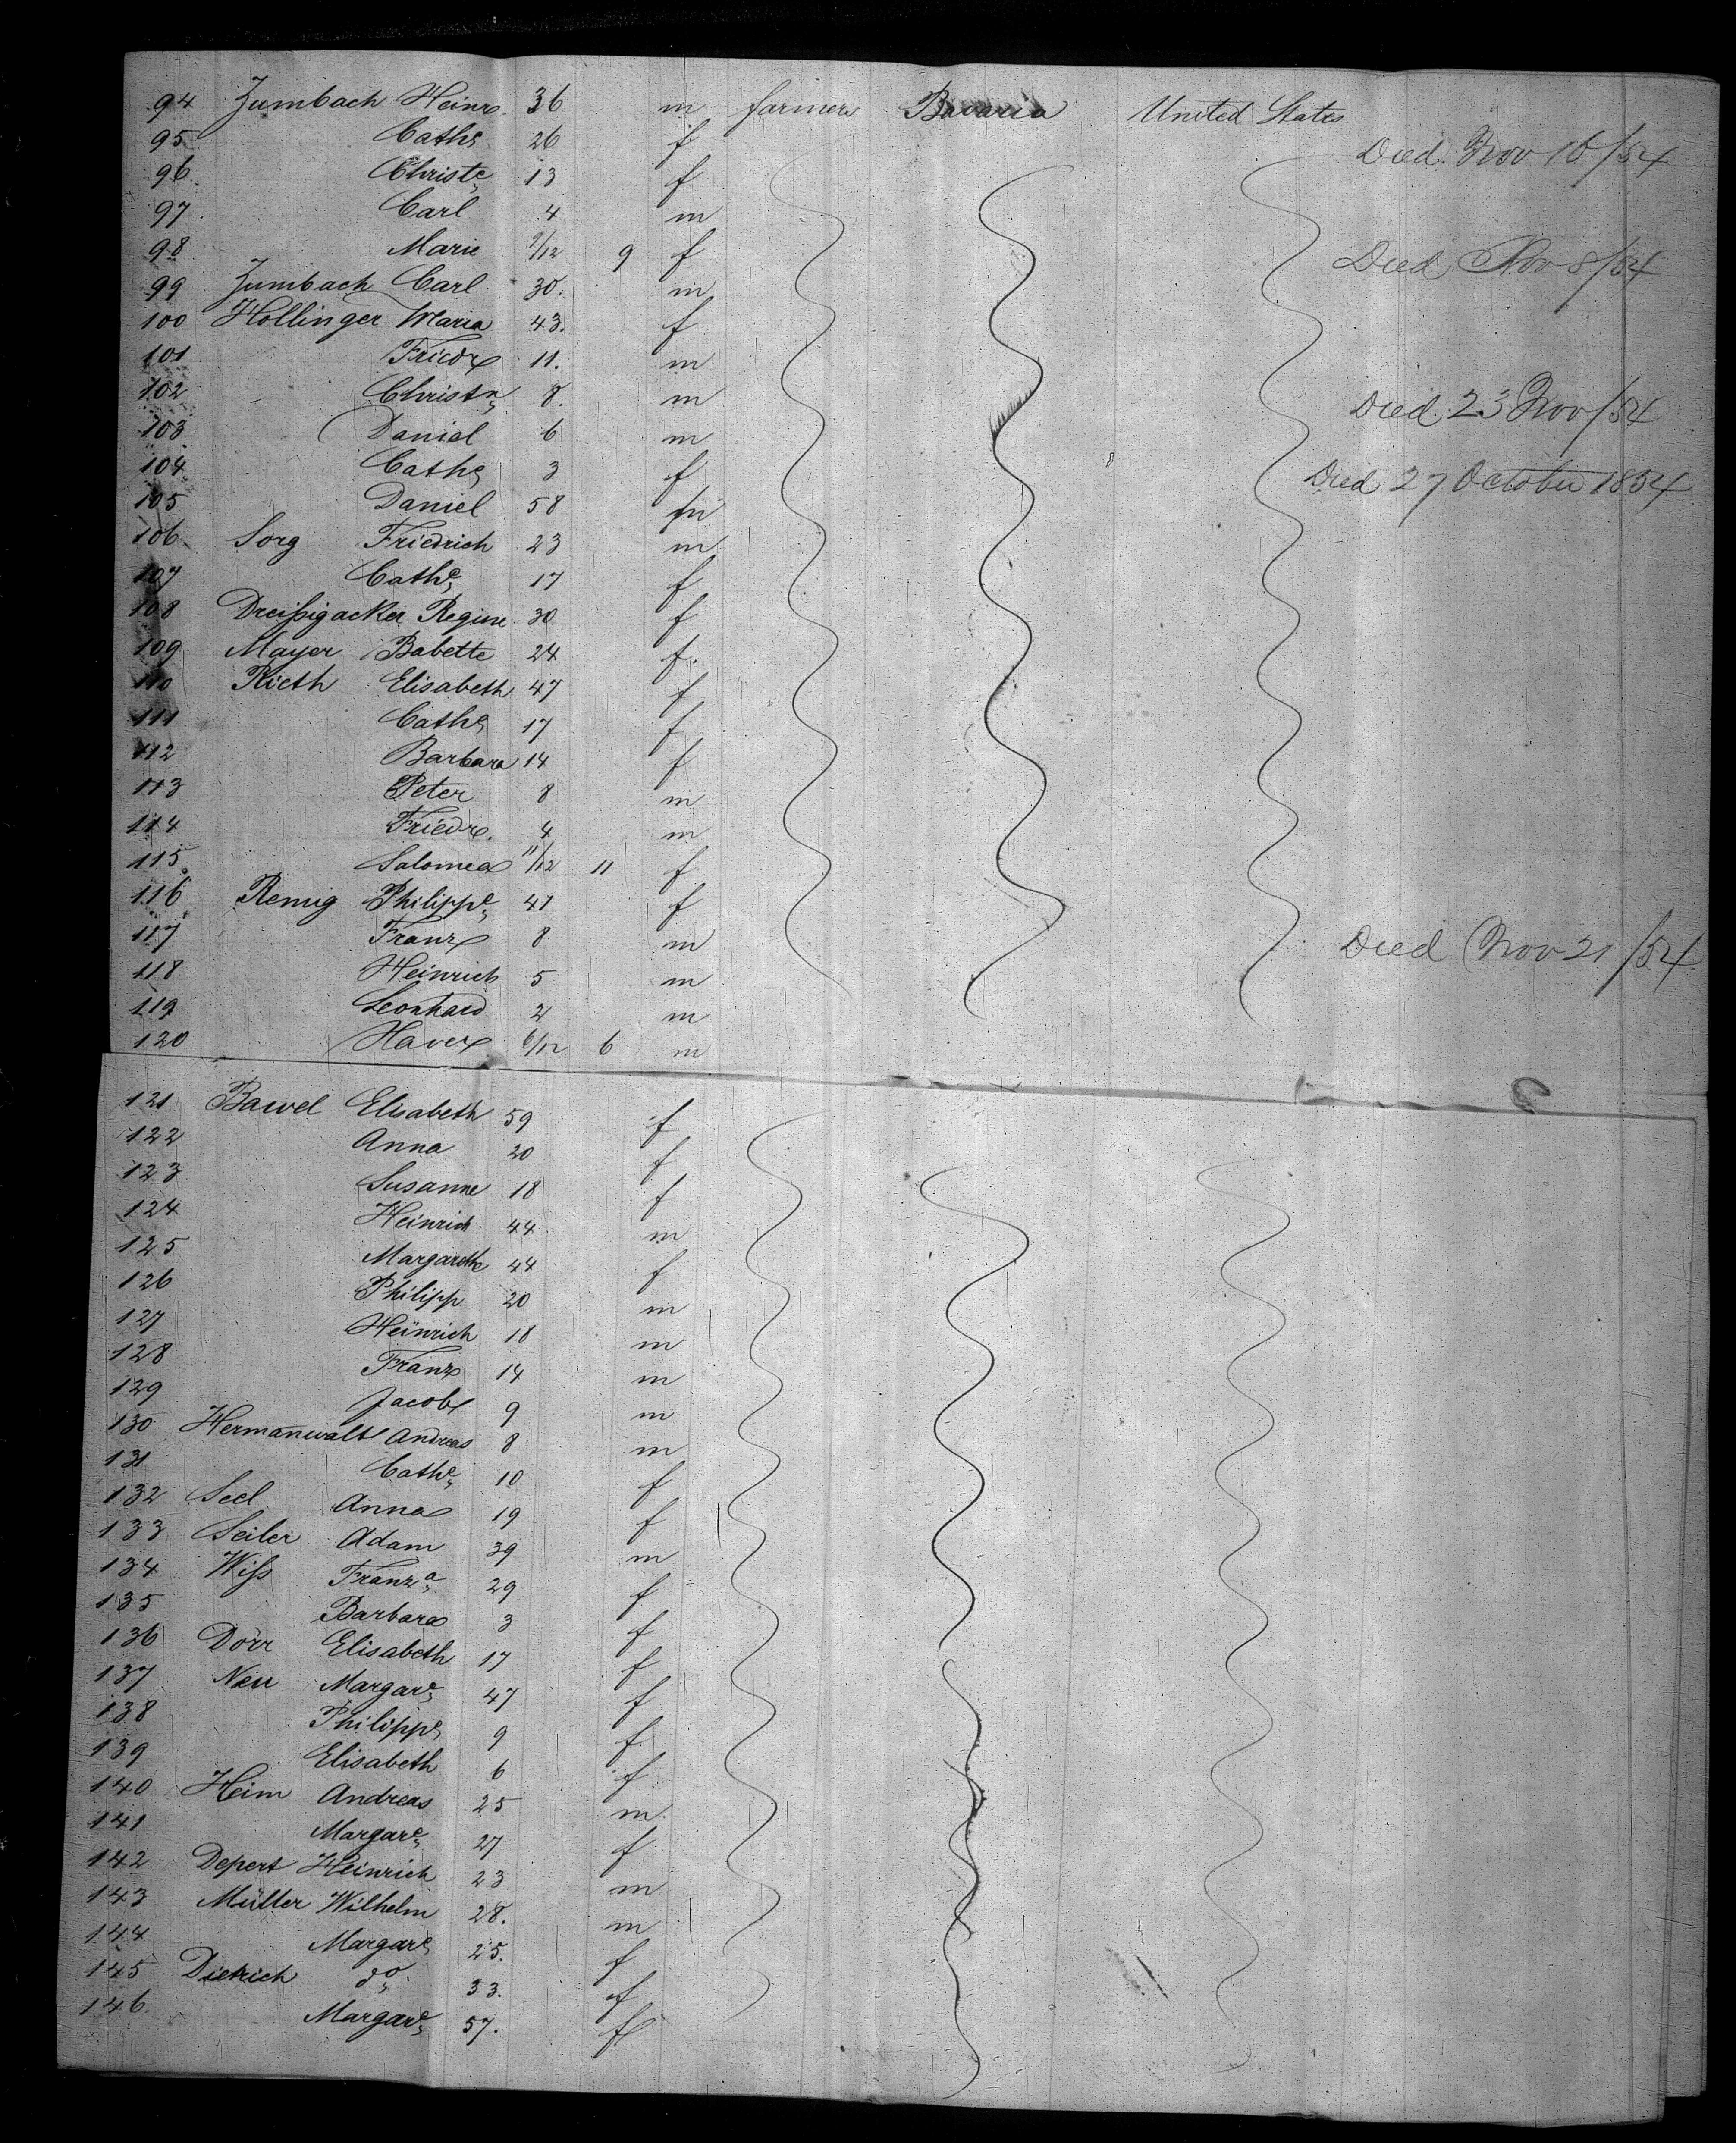 94 Zumbach Heinr. 36 m farmers Bavaria United States
95 Cathe 26 f Died Nov 16/54
96 Christe 13 f
97 Carl 4 m
98 Marie 9/12 9 f Died Nov 8/54
99 Zumbach Carl 30. m
100 Hollinger Maria 43. f
101 Friedr 11. m
102 Christn 8. m Died 23 Nov/54
103 Daniel 6 m
104 Cathe 3 f Died 27 October 1854
105 Daniel 58 m
106 Sorg Friedrich 23 m
107 Cathe 17 f
108 Dreißigacker Regine 30 f
109 Mayer Babette 24 f.
110 Rieth Elisabeth 47 f
111 Cathe 17 f
112 Barbara 14 f
113 Peter 8 m
114 Friedr. 4 m
115 Salomea 11/12 11 f
116 Remig Philippe 41 f
117 Franz 8 m Died Nov 21/54
118 Heinrich 5 m
119 Leonhard 2 m
120 Xaver 6/12 6 m
121 Bawel Elisabeth 59 f
122 Anna 20 f
123 Susanne 18 f
124 Heinrich 44 m
125 Margarethe 44 f
126 Philipp 20 m
127 Heinrich 18 m
128 Franz 14 m
129 Jacob 9 m
130 Hermanwalt Andreas 8 m
131 Cathe 10 f
132 Seel Anna 19 f
133 Seiler Adam 39 m
134 Wiß Franza 29 f
135 Barbara 3 f
136 Dörr Elisabeth 17 f
137 Neu Margare 47 f
138 Philippe 9 f
139 Elisabeth 6 f
140 Heim Andreas 25 m
141 Margare 27 f
142 Depert Heinrich 23 m
143 Müller Wilhelm 28. m
144 Margare 25. f
145 Dietrich do 33. f
146. Margare 57. f